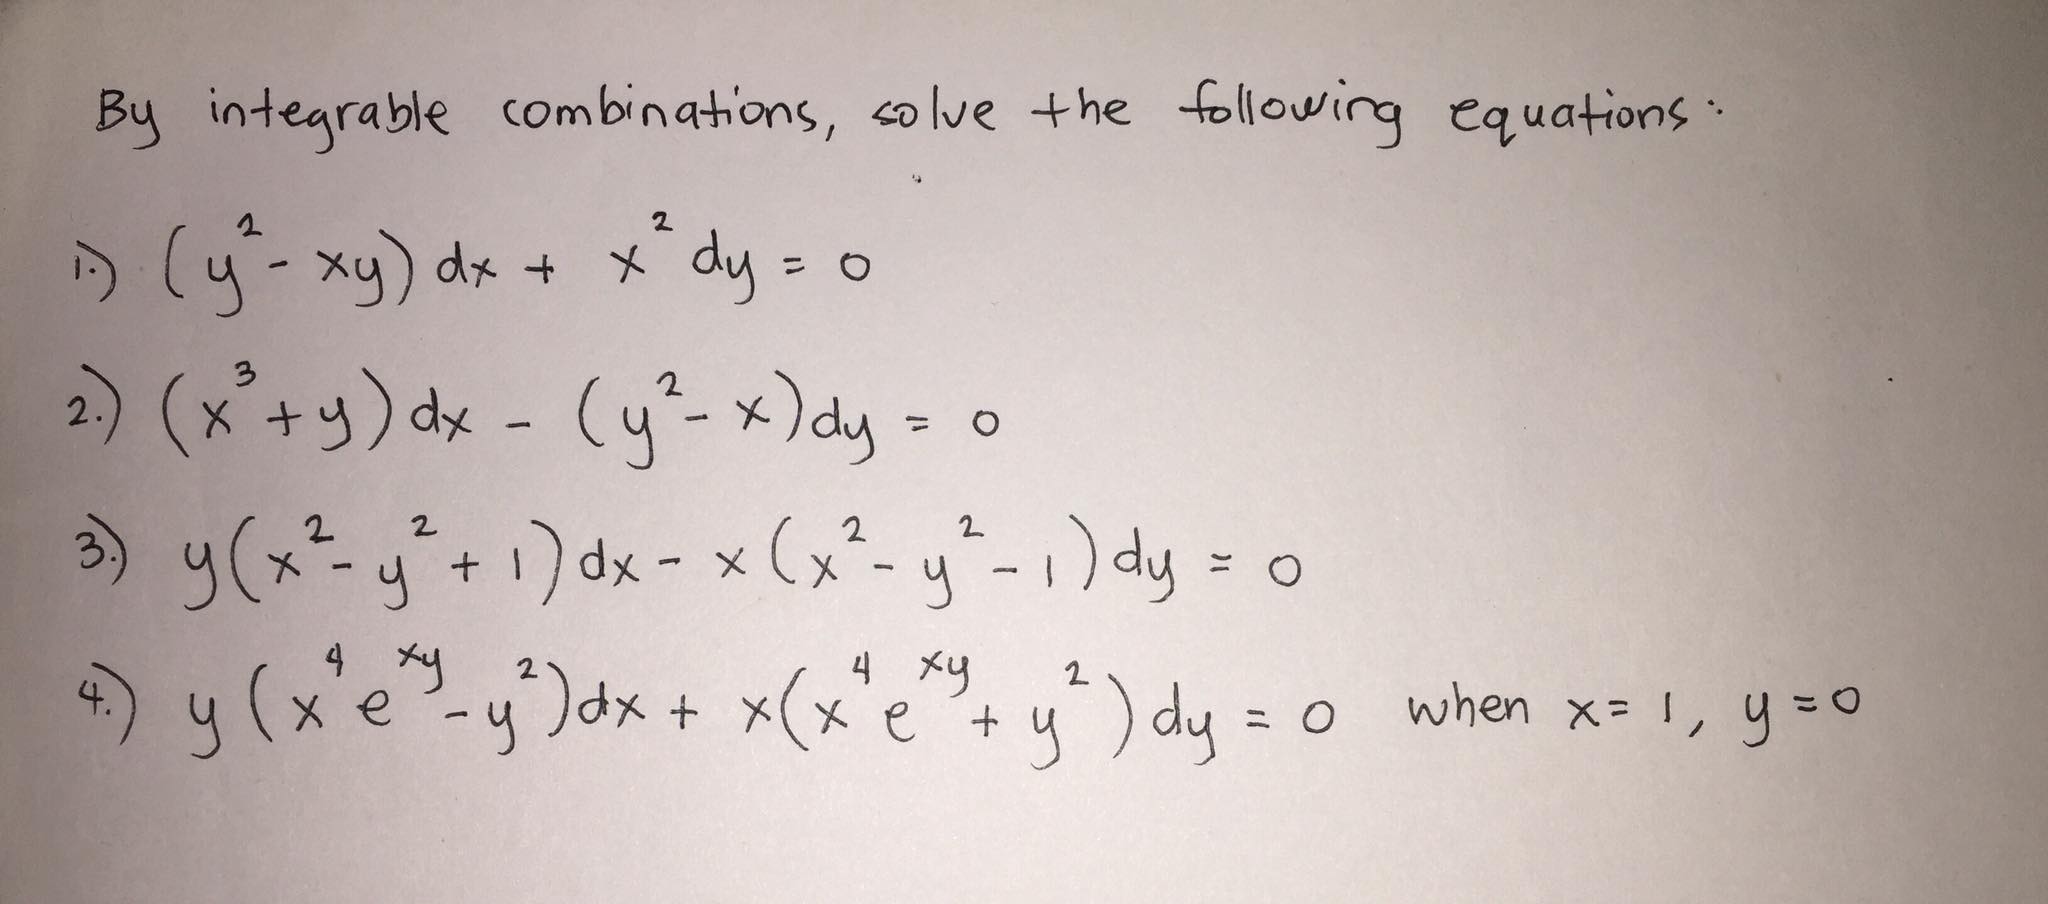 By integrable combinations, solve the following equations:
1.) (y² - xy) dx + x² dy = 0
2.) (x³ + y) dx - (y² - x) dy = 0
3.) y(x² - y² + 1) dx - x(x² - y² - 1) dy = 0
4.) y(x⁴e^xy - y²) dx + x(x⁴e^xy + y²) dy = 0 when x = 1, y = 0